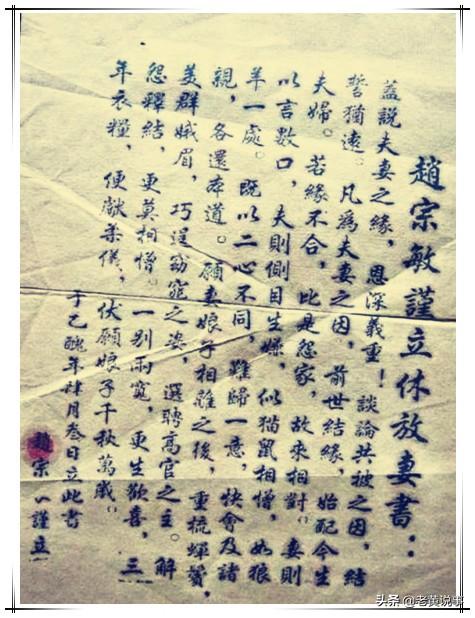 趙宗敏謹立休放妻書：
蓋說夫妻之緣，恩深義重！談論共被之因，結
誓猶遠。凡為夫妻之因，前世結緣，始配今生
夫婦。若緣不合，此是怨家，故來相對。妻則
以言數口，夫則側目生嫌，似猫鼠相憎，如狼
羊一處。既以二心不同，難歸一意，快會及諸
親，各還本道。願妻娘子相離之後，重梳蟬鬢，
美群娥眉，巧逞窈窕之姿，選聘高官之主。解
怨釋結，更莫相憎。一別兩寬，更生歡喜，三
年衣糧，便獻柔儀，伏願娘子千秋萬歲。
于乙醜年肆月叁日立此書
趙宗謹立
头条 @老黄说